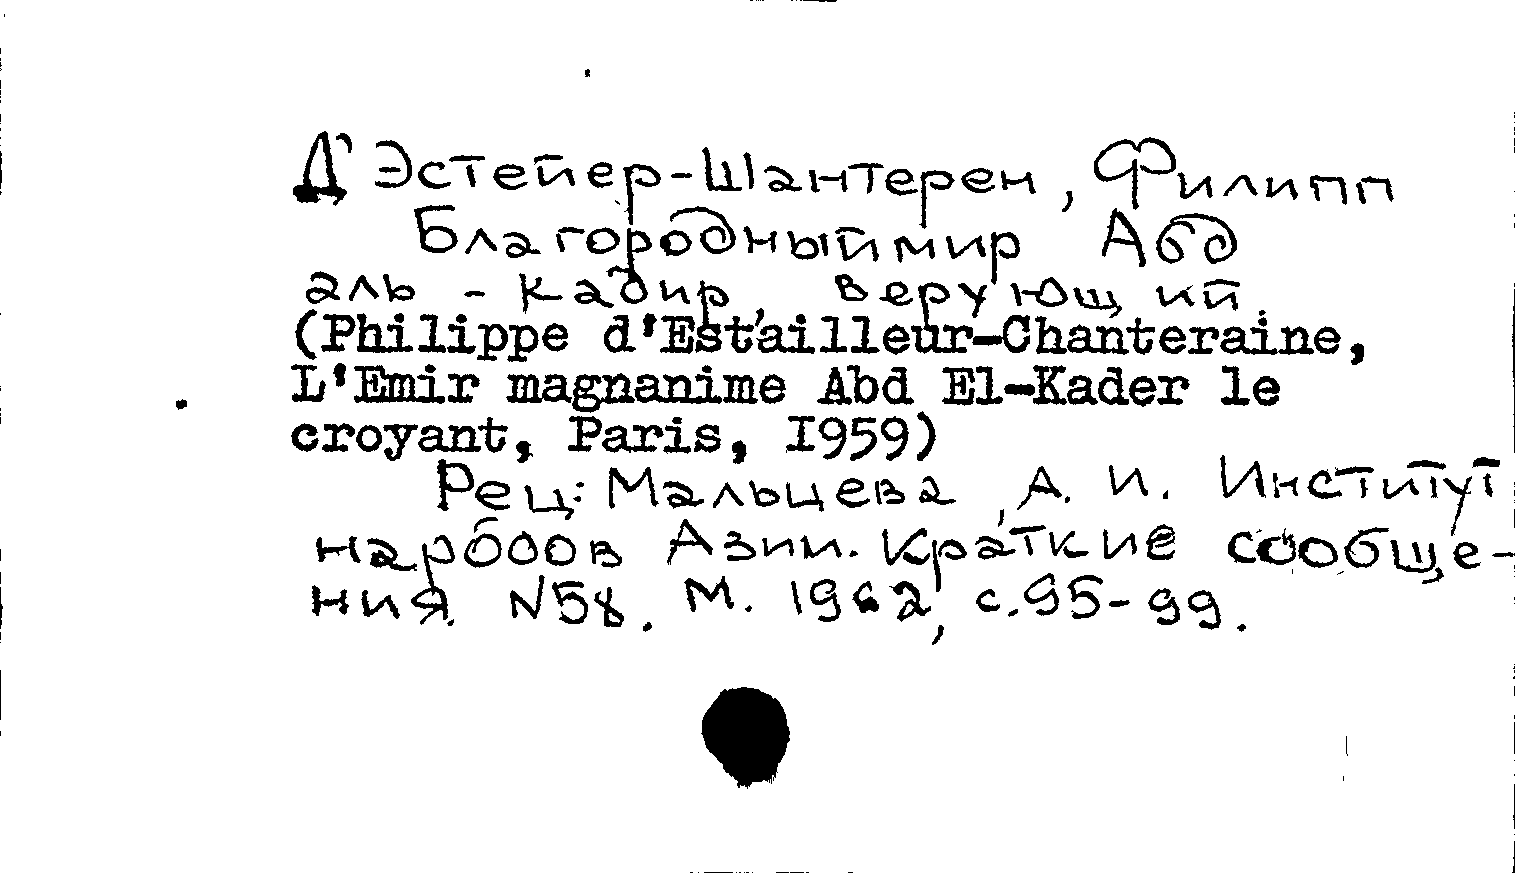 Д'Эстейер-Шантерен, Филипп
Благородныймир Абд
аль-Кадир, верующий.
(Philippe d'Estailleur-Chanteraine,
L'Emir magnanime Abd El-Kader le
croyant, Paris, I959)
Рец: Мальцева, А. И. Институт
нарбоов Азии. Краткие сообще-
ния N58. М. 1962, с.95-99.